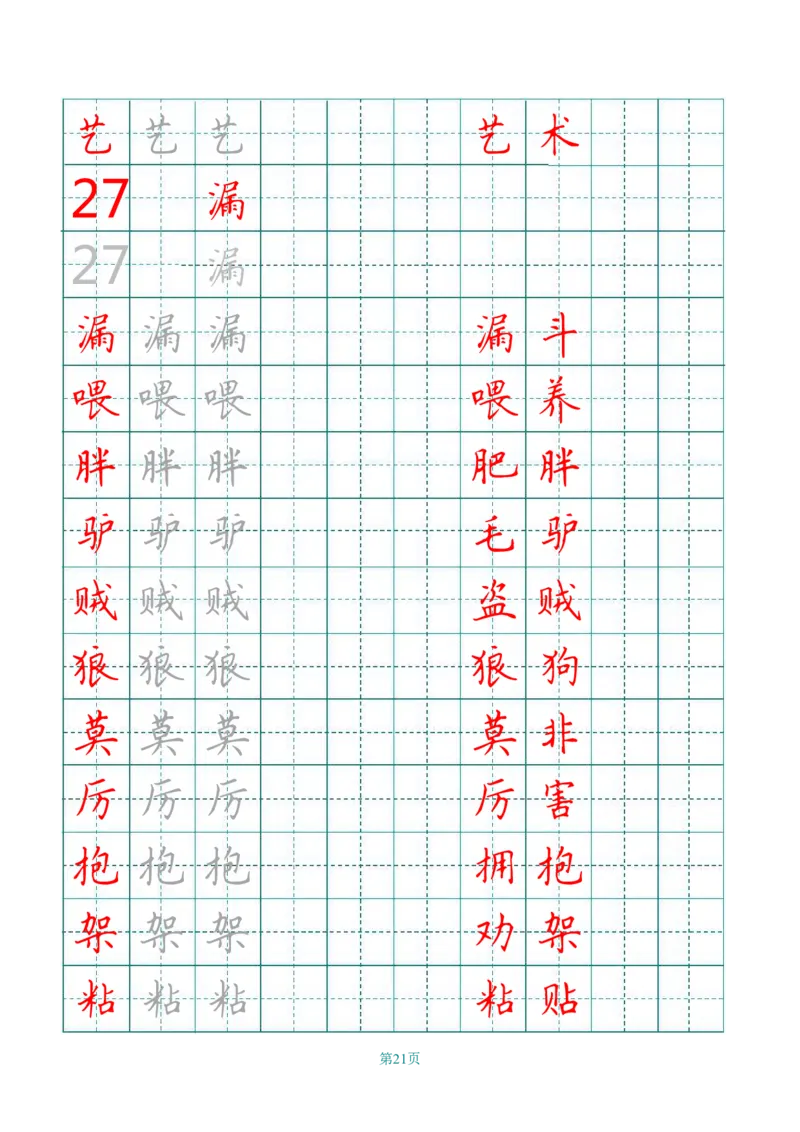 艺 艺 艺 艺 术
27 漏
27 漏
漏 漏 漏 漏 斗
喂 喂 喂 喂 养
胖 胖 胖 肥 胖
驴 驴 驴 毛 驴
贼 贼 贼 盗 贼
狼 狼 狼 狼 狗
莫 莫 莫 莫 非
厉 厉 厉 厉 害
抱 抱 抱 拥 抱
架 架 架 劝 架
粘 粘 粘 粘 贴
第21页